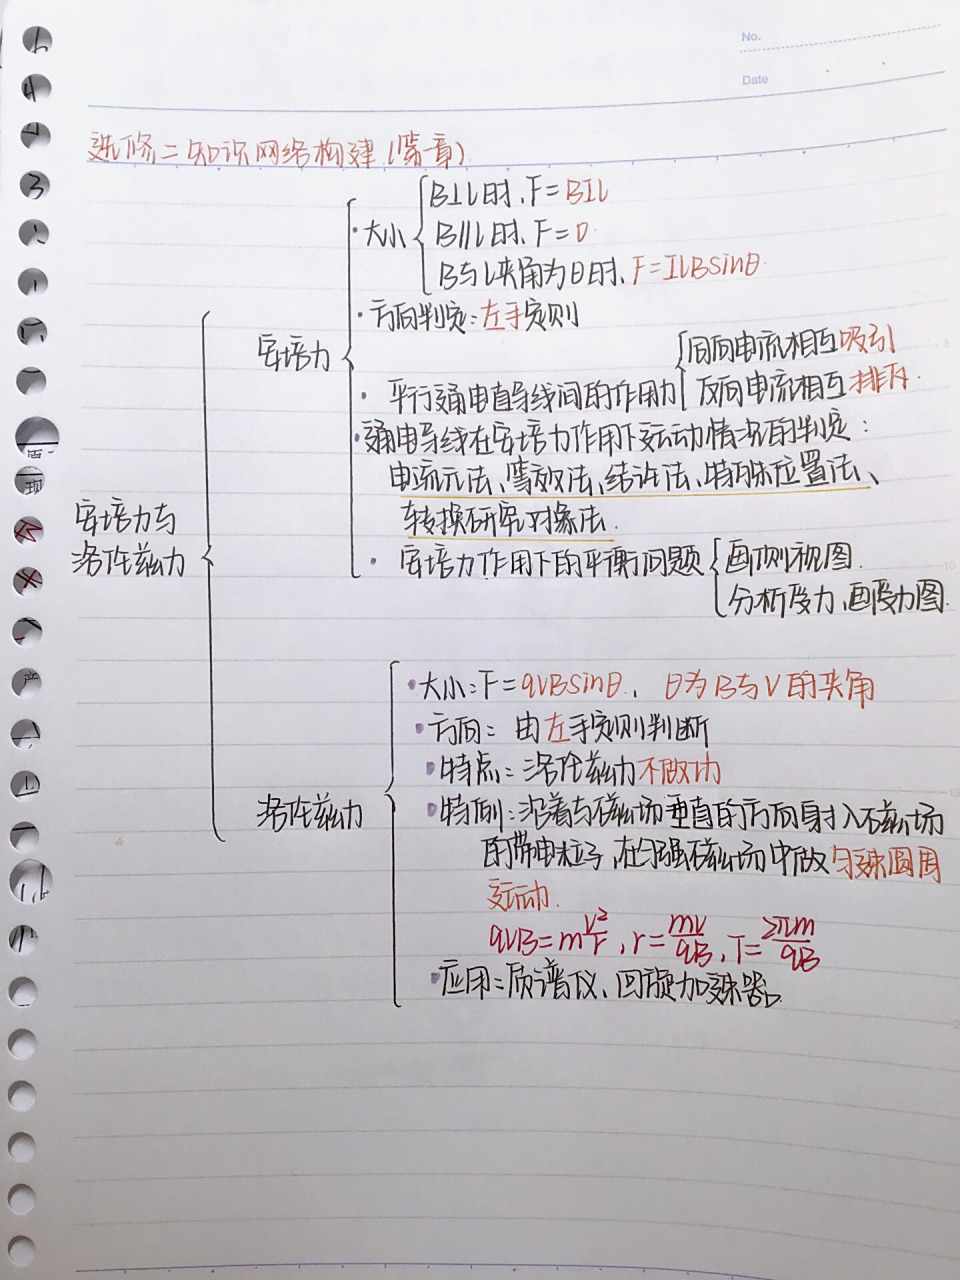 No.
Date
选修二知识网络构建(第一章)
安培力与
洛伦兹力
安培力
·大小
B⊥L时,F=BIL
B∥L时,F=0
B与L夹角为θ时,F=ILBsinθ
·方向判定:左手定则
·平行通电直导线间的作用力
同向电流相互吸引
反向电流相互排斥.
·通电导线在安培力作用下运动情况的判定:
电流元法、等效法、结论法、特殊位置法、
转换研究对象法.
·安培力作用下的平衡问题
画侧视图.
分析受力,画受力图.
洛伦兹力
·大小:F=qVBsinθ, θ为B与V的夹角
·方向:由左手定则判断
·特点:洛伦兹力不做功
·特例:沿着与磁场垂直的方向射入磁场
的带电粒子,在匀强磁场中做匀速圆周
运动.
qVB=mV²/r, r=mv/qB, T=2πm/qB
·应用:质谱仪、回旋加速器.